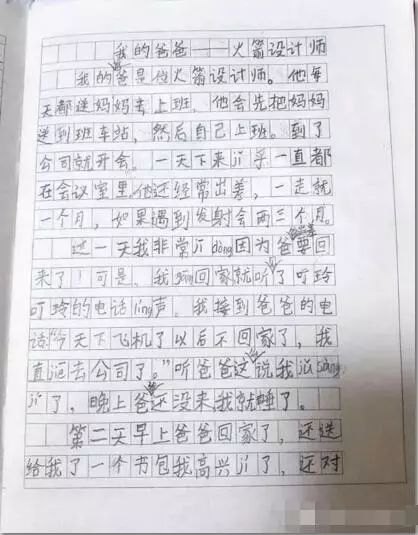 我的爸爸——火箭设计师
我的爸是位火箭设计师。他每
天都送妈妈去上班，他会先把妈妈
送到班车站，然后自己上班。到了
公司就开会。一天下来jǐ乎一直都
在会议室里。他还经常出差，一走就
一个月，如果遇到发射会两三个月。
这一天我非常jī dòng因为爸出差要回
来了！可是，我gāng回家就听了叮玲
叮玲的电话líng声。我接到爸爸的电
话“今天下飞机了以后不回家了，我
直jiē去公司了。”听爸爸这说我jǔ sàng
jí了，晚上爸还没来我就睡了。
第二天早上爸爸回家了，还送
给我了一个书包我高兴jí了，还对